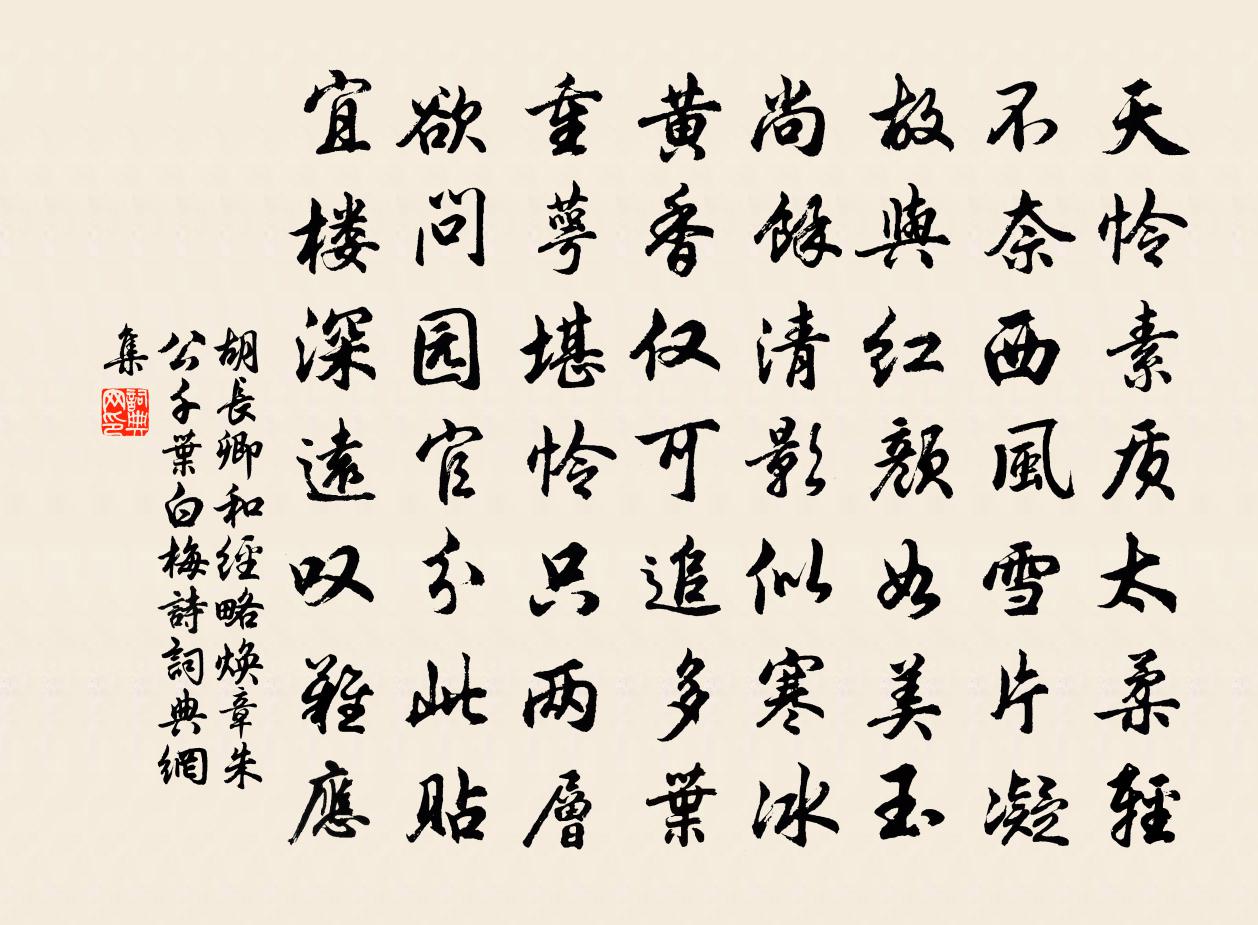 天怜素质太柔轻
不奈西風雪片凝
故與红顔如美玉
尚餘清影似寒冰
黄香仅可追多葉
重萼堪怜只两層
欲问园官分此贴
宜楼深遠叹難應
胡長卿和經略焕章朱
公千葉白梅詩詞典網
集
詞典网印